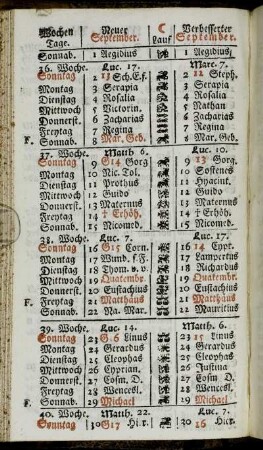 Wochen Neuer C Verbesserter
Tage. September. Lauf September.
Sonnab. 1 Aegidius 1 Aegidius,
36. Woche. Luc. 17. Marc. 7.
Sonntag 2 Steph.
Montag 3 Serapia 3 Serapia
Dienstag 4 Rosalia 4 Rosalia
Mittwoch 5 Victorin. 5 Nathan
Donnerst. 6 Zacharias 6 Zacharias
Freytag 7 Regina 7 Regina
F. Sonnab. 8 Mar. Geb. 8 Mar. Geb.
37. Woche. Matth. 6. Luc. 10.
Sonntag 9 G14 Gorg 9 13 Gorg.
Montag 10 Nic. Tol. 10 Sostenes
Dienstag 11 Prothus 11 Hyacint.
Mittwoch 12 Guido 12 Guido
Donnerst. 13 Maternus 13 Maternus
Freytag 14 † Erhöh. 14 † Erhöh.
Sonnab. 15 Nicomed. 15 Nicomed.
38. Woche. Luc. 7. Luc. 17.
Sonntag 16 G15 Corn. 16 14 Cypr.
Montag 17 17 Lampertus
Dienstag 18 Thom. v. v. 18 Richardus
Mittwoch 19 Quatembr. 19 Quatembr.
Donnerst. 20 Eustachius 20 Eustachius
F. Freytag 21 Matthäus 21 Matthäus
Sonnab. 22 Na. Mar. 22 Mauritius
39. Woche. Luc. 14. Matth. 6.
Sonntag 23 G16 Linus 23 15 Linus
Montag 24 Gerardus 24 Gerardus
Dienstag 25 Cleophas 25 Cleophas
Mittwoch 26 Cyprian. 26 Justina
Donnerst. 27 Cosm. D. 27 Cosm. D.
Freytag 28 Wencesl. 28 Wencesl.
F. Sonnab. 29 Michael 29 Michael
40. Woche. Matth. 22. Luc. 7.
Sonntag 30 G17 Hier. 30 16 Hier.